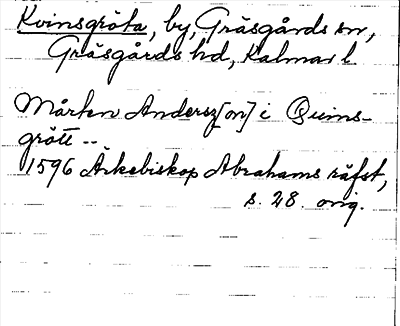 Kvinsgröta, by, Gräsgårds sn,
Gräsgårds hd, Kalmar l
Mårten Andersz[on] i Quins-
grött --
1596 Ärkebiskop Abrahams räfst,
s. 28. orig.